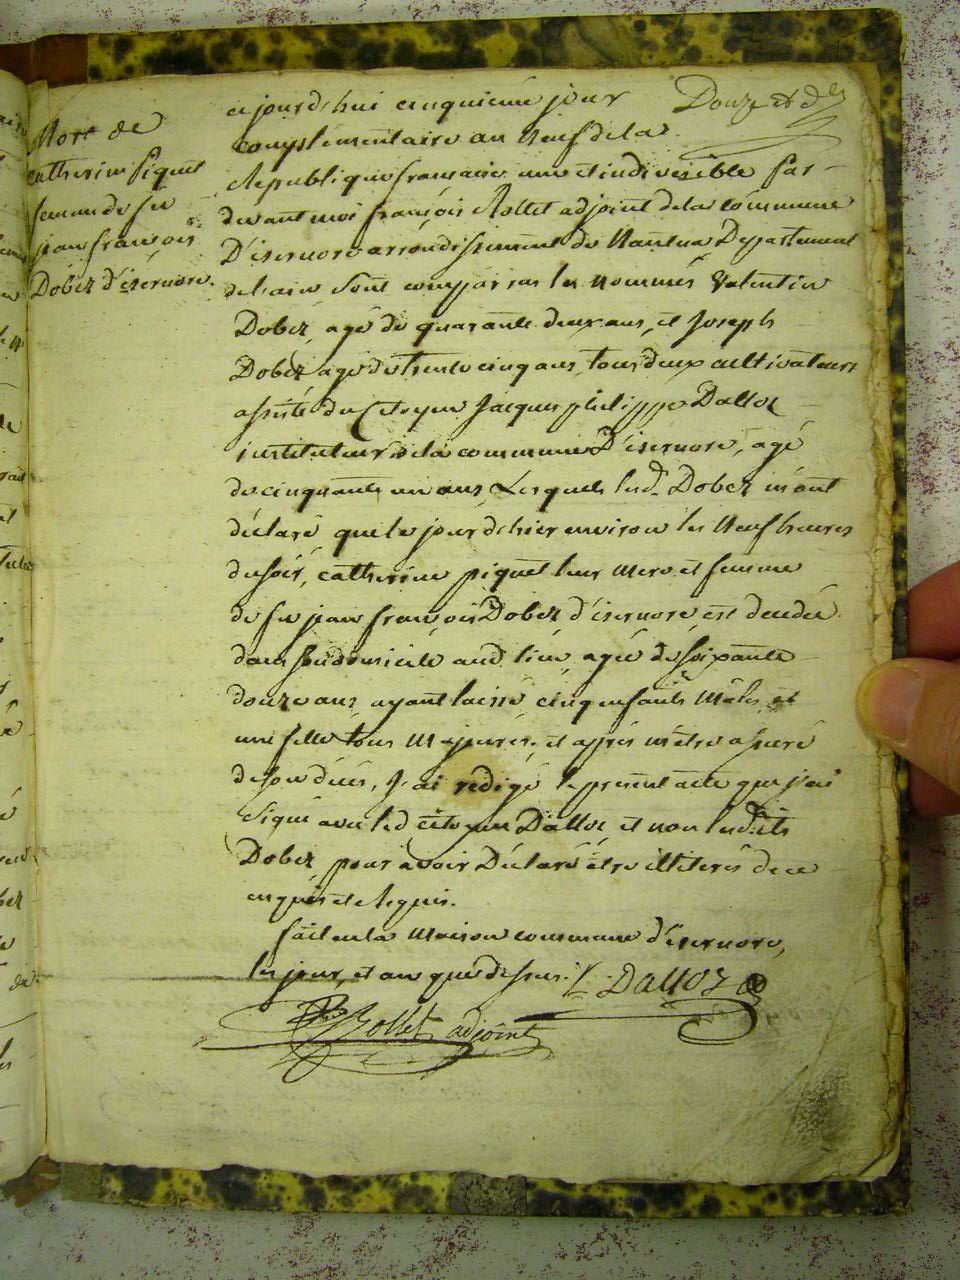 Douze et d.er
Mort de
catherine piquet
femme de fu
jean francois
Dobez d'isernore.
cejourd'hui cinquieme jour
complementaire an Neuf de la
Republique francaise une et indivisible par
devant moi francois Rollet adjoint de la commune
D'isernore arrondissement de Nantua Departement
de l'ain sont comparrus les nommés valentin
Dobez, agé de quarante deux ans, et Joseph
Dobez agé de trente cinq ans, tous deux cultivateurs
assisté du Citoyen Jacques philippe Dalloz
instituteur de la commune D'isernore, agé
de cinquante un ans, Lesquels lesd. Dobez m'ont
déclaré que le jour d'hier environ les Neuf heures
du soir, catherine piquet leur Mere et femme
de fu jean francois Dobez d'isernore, est decedée
dans son domicile aud. lieu, agée de soixante
douze ans, ayant laissé cinq enfants Mâles et
une fille tous Majeures, et aprés m'être assuré
de son décés, J'ai rédigé le présent acte que j'ai
signé avec led. citoyen Dalloz, et non lesdits
Dobez pour avoir Déclaré être illiterés de ce
enquis et Requis.
fait en la Maison commune d'isernore,
les jour, et an que dessus.
Dalloz
Rollet adjoint